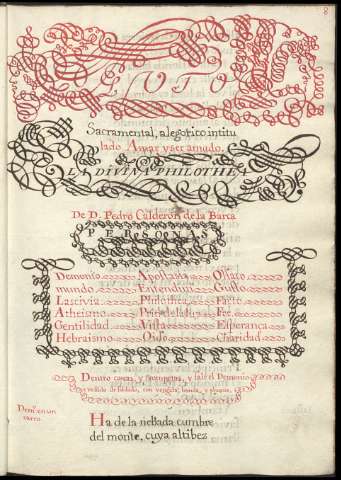 AUTO
Sacramental, alegorico intitu
lado Amar y ser amado.
LA DIVINA PHILOTHEA
De D. Pedro Calderon de la Barca
PERSONAS
Demonio Apostasia Olfato
mundo Entendimi Gusto
Lascivia Philothea Tacto
Atheismo Fee
Gentilidad Vista Esperanca
Hebraismo Oido Charidad
Dentro caxas, y trompetas, y sale el Demonio
vestido de soldado, con vengala, banda, y plumas
Demo en un
carro
Ha de la nebada cumbre
del monte, cuya altibez